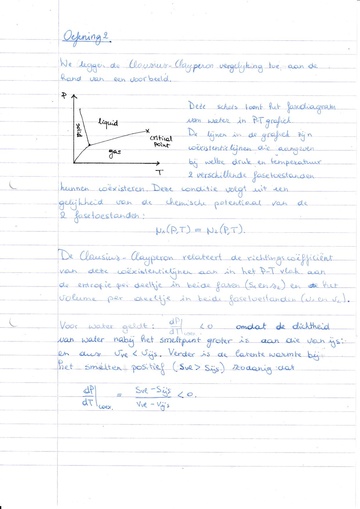 Oefening 2.
We leggen de Clausius-Clayperon vergelijking toe, aan de
hand van een voorbeeld.
P
liquid
critical
point
gas
T
Deze schets toont het fasediagram
van water in P-T grafiek
De lijnen in de grafiek zijn
coëxistentielijnen die aangeven
bij welke druk en temperatuur
2 verschillende fasetoestanden
kunnen coëxisteren. Deze conditie volgt uit een
gelijkheid van de chemische potentiaal van de
2 fasetoestanden:
(P,T) = (P,T).
De Clausius-Clayperon relateert de richtingscoëfficiënt
van deze coëxistentielijnen aan in het P-T vlak aan
de entropie per deeltje in beide fasen en het
volume per deeltje in beide fasetoestanden
Voor water geldt: dP/dT|coex. < 0 omdat de dichtheid
van water nabij het smeltpunt groter is aan die van ijs:
en dus Vvl < Vijs. Verder is de latente warmte bij
het smelten positief (Svl > Sijs) zodanig dat
dP/dT|coex. = (Svl - Sijs)/(Vvl - Vijs) < 0.